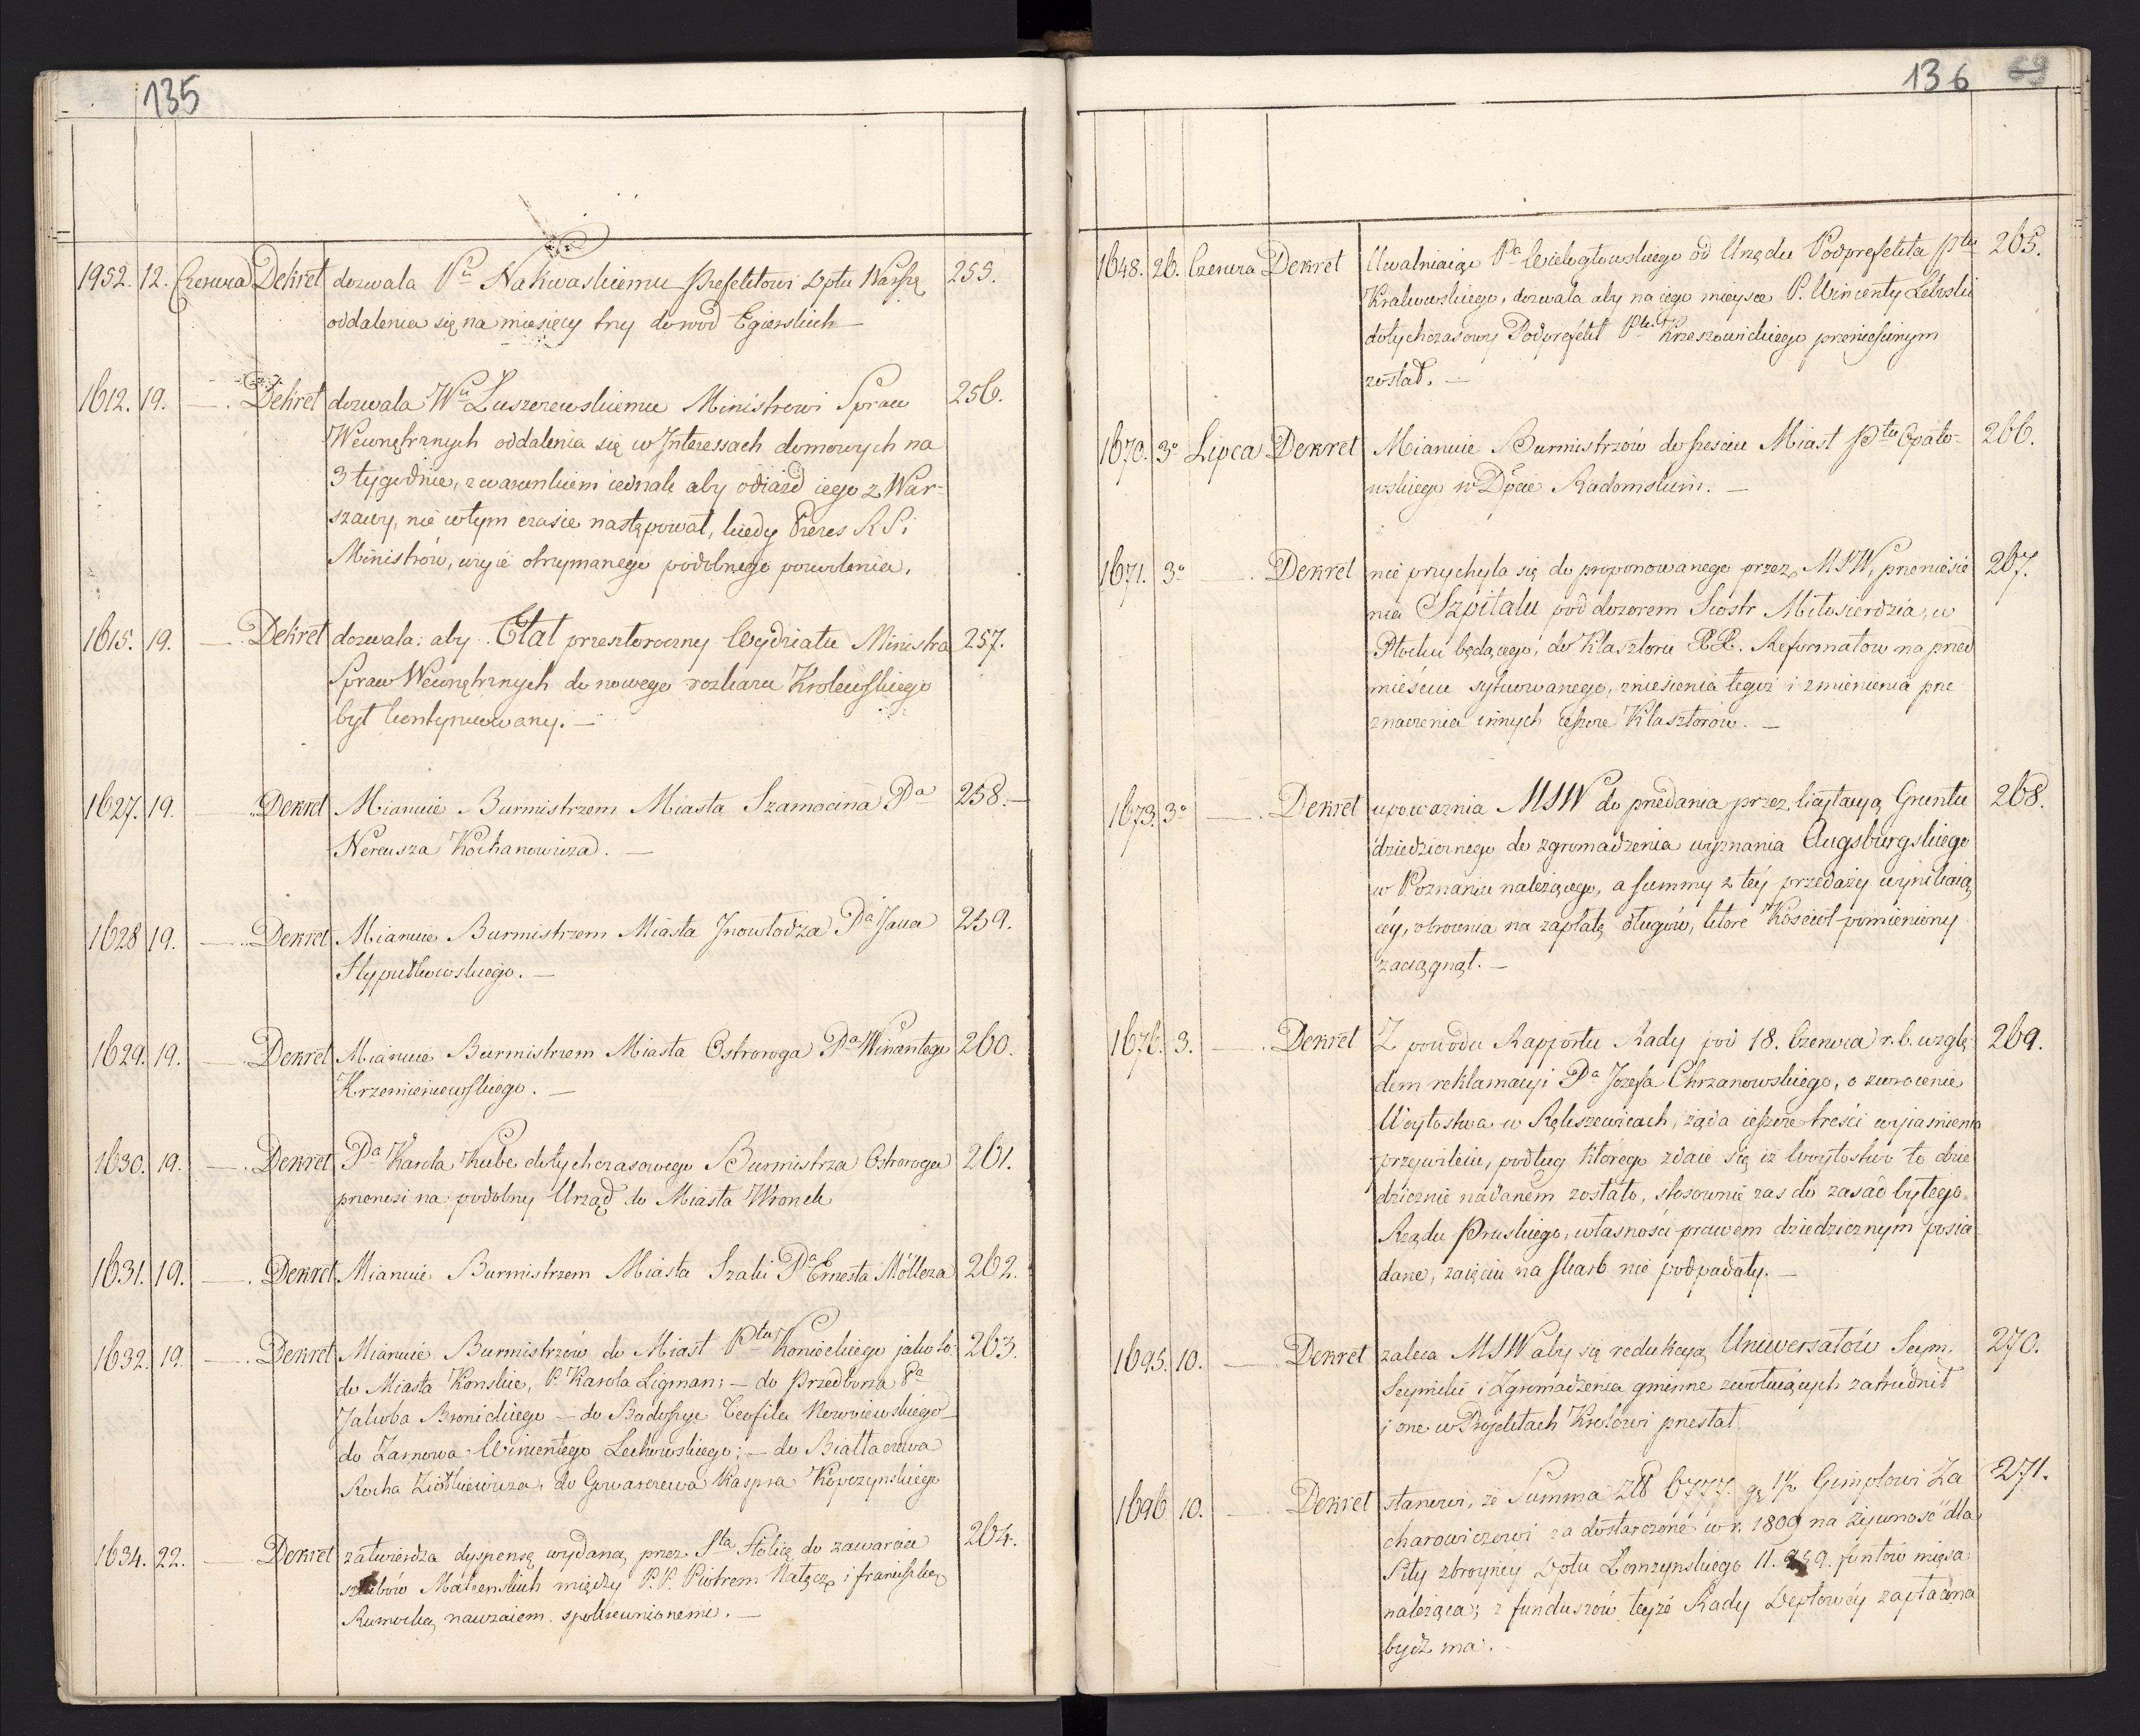 135
1952. 12. Czerwca Dekret dozwala Pu Nakwaskiemu Prefektowi Dptu Warsz. 255.
oddalenia się na miesięcy trzy do wód Egierskich —
1612. 19. — . Dekret dozwala Wu Łuszczewskiemu Ministrowi Spraw 256.
Wewnętrznych oddalenia się w Interessach domowych na
3 tygodnie, z warunkiem iednak aby odiazd iego z War-
szawy, nie w tym czasie następował, kiedy Prezes R S i
Ministrów, użyie otrzymanego podobnego pozwolenia.
1615. 19. — . Dekret dozwala: aby Etat przeszłoroczny Wydziału Ministra 257.
Spraw Wewnętrznych do nowego rozkazu Krolewskiego
był kontynuowany. —
1627. 19. — . Dekret Mianuie Burmistrzem Miasta Szamocina Pa 258. —
Nereusza Kochanowicza. —
1628 19. — . Dekret Mianuie Burmistrzem Miasta Jnowłodza Pa Jana 259.
Stypułkowskiego. —
1629. 19. — . Dekret Mianuie Burmistrzem Miasta Ostroroga Pa Wincentego 260.
Krzemieniewskiego. —
1630. 19. — . Dekret Pa Karola Kube dotychczasowego Burmistrza Ostroroga 261.
przenosi na podobny Urząd do Miasta Wronek
1631. 19. — . Dekret Mianuie Burmistrzem Miasta Szaki Pa Ernesta Möllera 262.
1632. 19. — . Dekret Mianuie Burmistrzów do Miast Ptu Konieckiego jako to: 263.
do Miasta Konskie, P. Karola Ligman; — do Przedborza Pa
Jakoba Bronickiego — do Radoszyc Teofila Nowowiewskiego —
do Zarnowa Wincentego Lechowskiego; — do Białaczowa
Rocha Ziołkiewicza, do Gowarczewa Kaspra Kopczynskiego
1634. 22. — . Dekret zatwierdza dyspensę wydaną przez Sta Stolicę do zawarcia 264.
szlubów Małżenskich między P. P. Piotrem Nałęcz i franciszką
Rumocką nawzaiem spokrewnionemi. —
136 69
1648. 26. Czerwca Dekret Uwalniaiąc Pa Wielogłowskiego od Urzędu Podprefekta Ptu 265.
Krakowskiego, dozwala aby na iego mieysce P. Wincenty Łebski
dotychczasowy Podprefekt Ptu Krzeszowickiego przeniesionym
został. —
1670. 3o Lipca Dekret Mianuie Burmistrzów do sześciu Miast Ptu Opato- 266.
wskiego w Dpcie Radomskim. —
1671. 3o — . Dekret nie przychyla się do proponowanego przez MSW, przeniesie 267.
nia Szpitalu pod dozorem Siostr Miłosierdzia, w
Płocku będącego, do Klasztoru XX. Reformatow na przed
mieściu sytuowanego, zniesienia tegoż i zmienienia prze
znaczenia innych ieszcze Klasztorów. —
1673. 3o — . Dekret upoważnia MSW do przedania przez licytacyą Gruntu 268.
dziedzicznego do zgromadzenia wyznania Augsburgskiego
w Poznaniu należącego, a summy z tey przedaży wynikaią
cey, obrocenia na zapłatę długów, które Kościół pomieniony
zaciągnął. —
1676. 3. — . Dekret Z powodu Rapportu Rady pod 18. Czerwca r. b. wzglę 269.
dem reklamacyi Pa Jozefa Chrzanowskiego, o zwrocenie
Woytostwa w Rększewicach, żąda ieszcze treści wyiasnienia
przywileiu, podług którego zdaie się iż Woytostwo to dzie
dzicznie nadanem zostało, stosownie zas do zasad byłego
Rządu Pruskiego, własności prawem dziedzicznym posia
dane, zaięciu na skarb nie podpadały. —
1695. 10. — . Dekret zaleca MSW aby się redukcyą Uniwersałów Seym. 270.
Seymiki i Zgromadzenia gminne zwołuiących zatrudnił
i one w Projektach Krolowi przesłał
1696 10. — . Dekret stanowi, że Summa Złł 6777. gr 1½ Gimplowi Za 271.
charowiczowi za dostarczone w r. 1809 na żywność dla
Siły zbroyney Dptu Łomzynskiego 11. 259. funtów mięsa
należąca; z funduszów teyże Rady Deptowéy zapłacona
bydź ma.